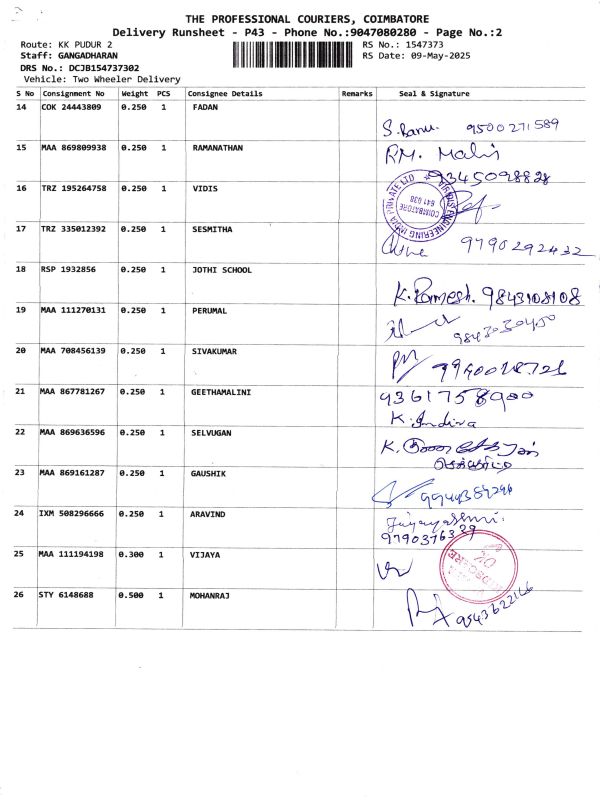 THE PROFESSIONAL COURIERS, COIMBATORE
Delivery Runsheet - P43 - Phone No.:9047080280 - Page No.:2
Route: KK PUDUR 2 RS No.: 1547373
Staff: GANGADHARAN RS Date: 09-May-2025
DRS No.: DCJB154737302
Vehicle: Two Wheeler Delivery
S No Consignment No Weight PCS Consignee Details Remarks Seal & Signature
14 COK 24443809 0.250 1 FADAN
S. Banu. 9500271589
15 MAA 869809938 0.250 1 RAMANATHAN RM. Malis
9345098828
16 TRZ 195264758 0.250 1 VIDIS
COIMBATORE
641 038
17 TRZ 335012392 0.250 1 SESMITHA
9790292432
18 RSP 1932856 0.250 1 JOTHI SCHOOL
K. Ramesh. 9843108108
19 MAA 111270131 1 0.250 PERUMAL
9843030450
20 MAA 708456139 0.250 1 SIVAKUMAR
21 MAA 867781267 0.250 1 GEETHAMALINI 9361758900
K. Indira
22 MAA 869636596 0.250 1 SELVUGAN K.
23 MAA 869161287 0.250 1 GAUSHIK
24 IXM 508296666 0.250 1 ARAVIND Jayayashmi.
9790376329
25 MAA 111194198 0.300 1 VIJAYA
26 STY 6148688 0.500 1 MOHANRAJ
9543622166